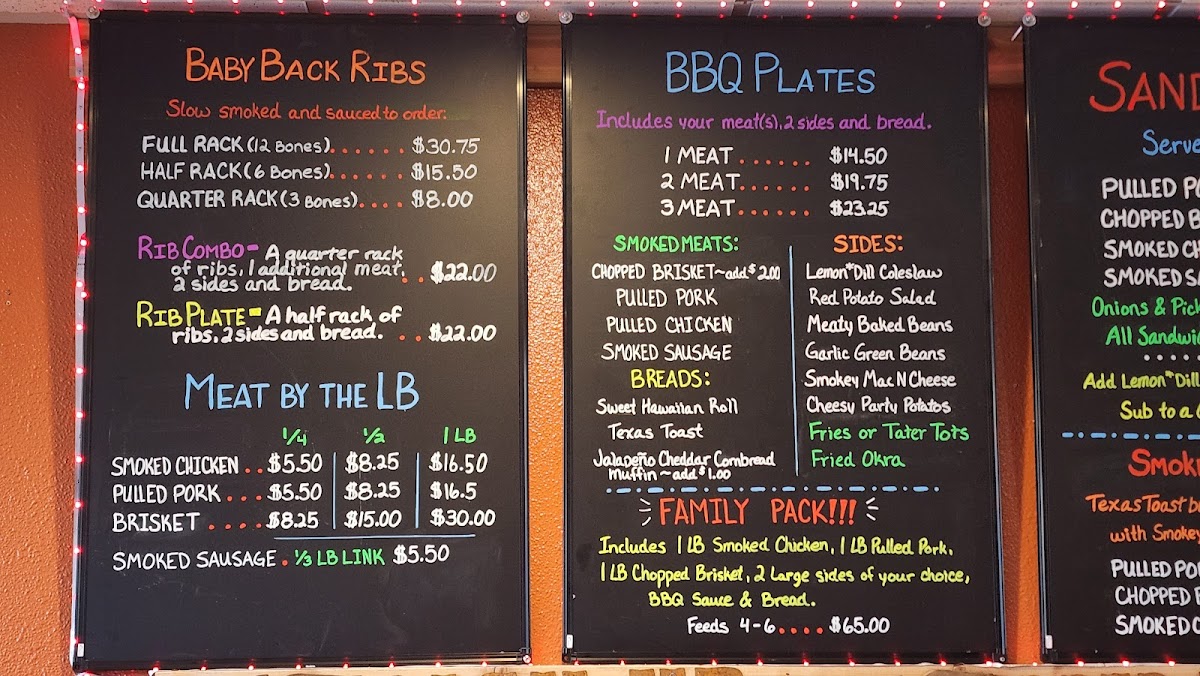 BABY BACK RIBS
Slow smoked and sauced to order.
FULL RACK (12 Bones)...... $30.75
HALF RACK (6 Bones)...... $15.50
QUARTER RACK (3 Bones).... $8.00
RIB COMBO - A quarter rack
of ribs, 1 additional meat,
2 sides and bread. .. $22.00
RIB PLATE - A half rack of
ribs, 2 sides and bread. .. $22.00
MEAT BY THE LB
1/4 1/2 1 LB
SMOKED CHICKEN .. $5.50 $8.25 $16.50
PULLED PORK ... $5.50 $8.25 $16.5
BRISKET .... $8.25 $15.00 $30.00
SMOKED SAUSAGE . 1/3 LB LINK $5.50
BBQ PLATES
Includes your meat(s), 2 sides and bread.
1 MEAT ...... $14.50
2 MEAT...... $19.75
3 MEAT...... $23.25
SMOKED MEATS:
CHOPPED BRISKET~add $2.00
PULLED PORK
PULLED CHICKEN
SMOKED SAUSAGE
BREADS:
Sweet Hawaiian Roll
Texas Toast
Jalapeño Cheddar Cornbread
Muffin ~ add $1.00
SIDES:
Lemon*Dill Coleslaw
Red Potato Salad
Meaty Baked Beans
Garlic Green Beans
Smokey Mac N Cheese
Cheesy Party Potatos
Fries or Tater Tots
Fried Okra
FAMILY PACK!!!
Includes 1 LB Smoked Chicken, 1 LB Pulled Pork,
1 LB Chopped Brisket, 2 Large sides of your choice,
BBQ Sauce & Bread.
Feeds 4-6.... $65.00
SAND
Serve
PULLED PO
CHOPPED B
SMOKED CH
SMOKED S
Onions & Pick
All Sandwic
Add Lemon*Dill
Sub to a
SMOK
Texas Toast b
with Smokey
PULLED PO
CHOPPED B
SMOKED C